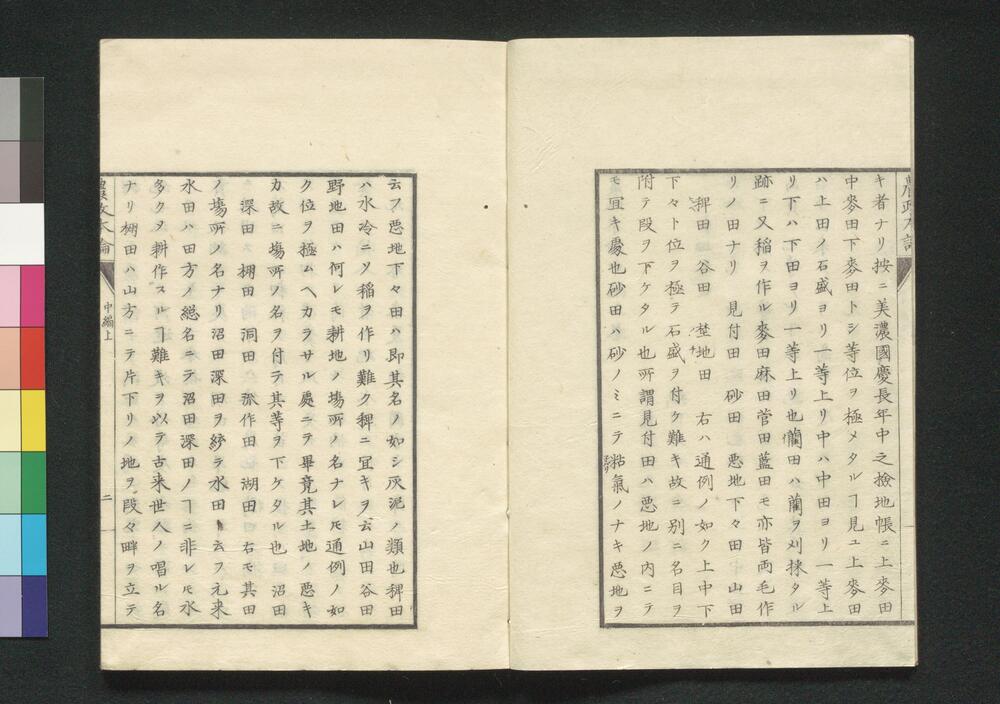 キ者ナリ按ニ美濃國慶長年中之撿地帳ニ上麥田
中麥田下麥田トシ等位ヲ極メタルヿ見ユ上麥田
ハ上田イ石盛ヨリ一等上リ中ハ中田ヨリ一等上
リ下ハ下田ヨリ一等上リ也藺田ハ藺ヲ刈捄タル
跡ニ又稲ヲ作ル麥田麻田菅田藍田モ亦皆両毛作
リノ田ナリ 見付田 砂田 悪地下々田 山田
稗田 谷田 埜地田 右ハ通例ノ如ク上中下
下々ト位ヲ極テ石盛ヲ付ケ難キ故ニ別ニ名目ヲ
附テ段ヲ下ケタル也所謂見付田ハ悪地ノ内ニテ
モ冝キ處也砂田ハ砂ノミニテ粘氣ノナキ悪地ヲ
云フ悪地下々田ハ即其名ノ如シ灰泥ノ類也稗田
ハ水冷ニソ稲ヲ作リ難ク稗ニ冝キヲ云山田谷田
野地田ハ何レモ耕地ノ塲所ノ名ナレ𪜈通例ノ如
ク位ヲ極ムヘカラサル處ニテ畢竟其土地ノ悪キ
カ故ニ塲所ノ名ヲ付テ其等ヲ下ケタル也 沼田
深田 棚田 洞田 流作田 湖田 右モ其田
ノ塲所ノ名ナリ沼田深田ヲ総テ水田ト云フ元来
水田ハ田方ノ総名ニテ沼田深田ノヿニ非レ𪜈水
多クヲ耕作スルヿ難キヲ以テ古来世人ノ唱ル名
ナリ棚田ハ山方ニテ片下リノ地ヲ段々畔ヲ立テ
農政本論
中編上
二